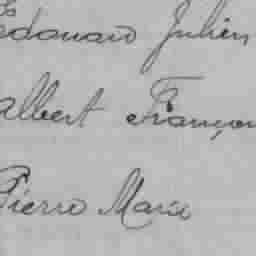 Edouard Julien
Albert François
Pierre Marie